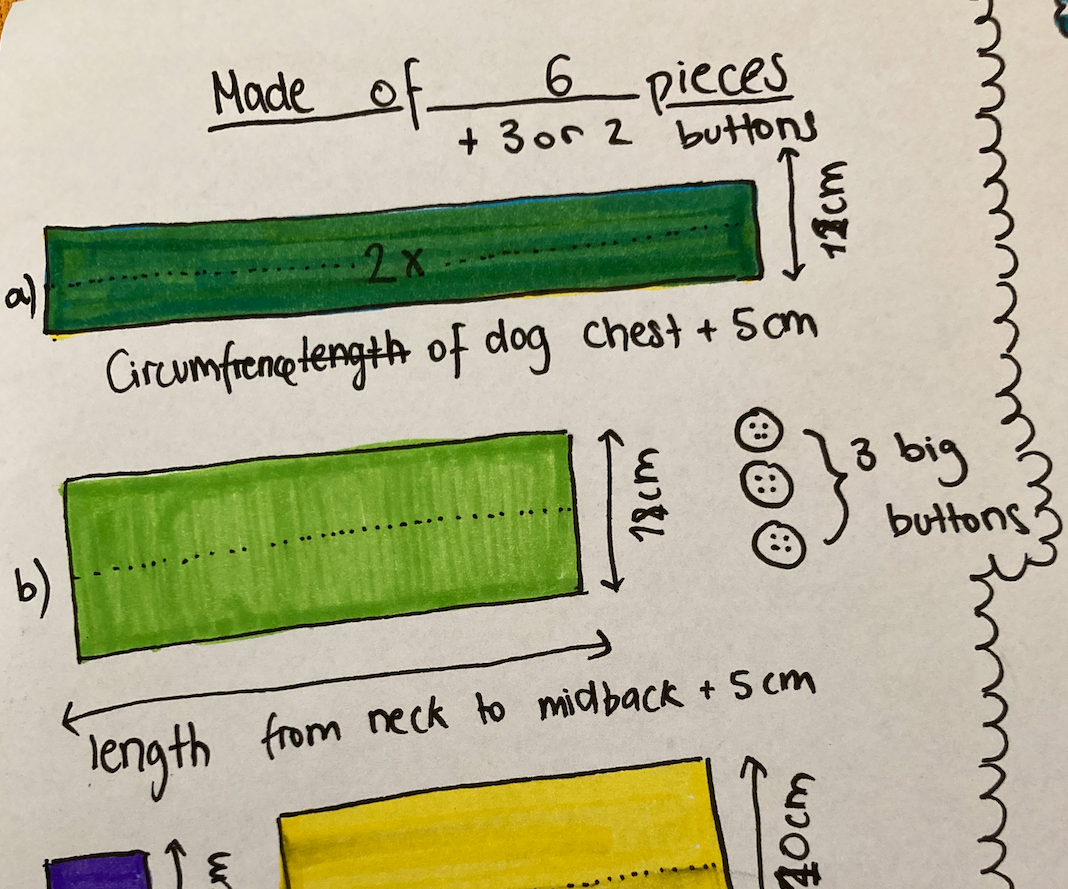 Made of 6 pieces
+ 3 or 2 buttons
a)
2x
Circumfrence length of dog chest + 5cm
b)
3 big
buttons
length from neck to midback + 5cm